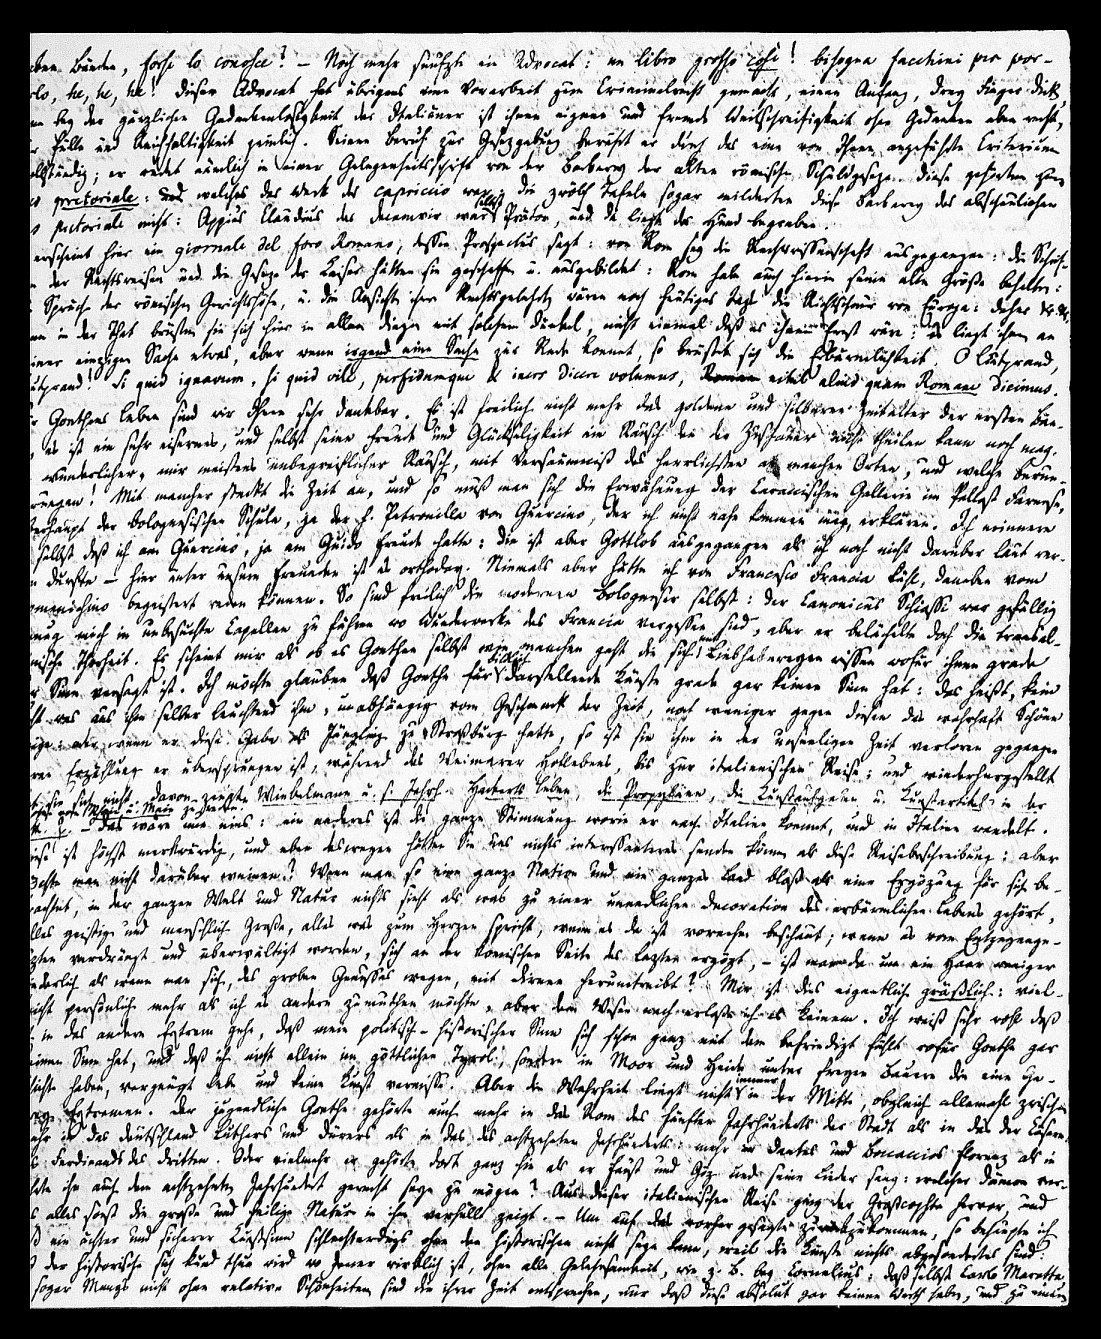 Bänden, forse lo conosce? – Noch mehr seufzte ein Advocat: un libro grosso così! bisogna facchini per por-
tarlo, he, he, he! dieser Advocat hat übrigens eine Vorarbeit zum Criminalrecht gemacht, einen Anfang, drey Finger dick,
bey der gänzlichen Gedankenlosigkeit der Italiäner ist ihnen eigene und fremde Weitschweifigkeit ohne Gedanken eben recht,
Fülle und Reichhaltigkeit. Seinen Beruf zur Gesezgebung beweist er durch das eine von Ihnen angeführte Criterium
vollständig; er redet nämlich in einer Gelegenheitsschrift von der Barbarey der alten römischen Schuldgeseze. diese gehörten zum
pretoriale: und welches das Werk des capriccio war; die zwölf Tafeln sogar milderten diese Barbarey des abscheulichen
pretoriale nicht: Appius Claudius der Decemvir war selbst Prätor, und da liegt der Hund begraben.
erscheint hier ein giornale del foro Romano, dessen Prospectus sagt: von Rom sey die Rechtswissenschaft ausgegangen: die Schäf-
der Rechtsweisen und die Geseze der Kaiser hätten sie geschaffen u. ausgebildet: Rom habe auch hierin seine alte Größe behalten:
Sprüche der römischen Gerichtshöfe, u. die Ansichten ihrer Rechtsgelehrten wären noch heutiges Tags die Richtschnur von Europa: daher &c &c,
in der That brüsten sie sich hier in allen Dingen mit solchem Dünkel, nicht einmal daß es ihnen Ernst wäre; es liegt ihnen an
einer einzigen Sache etwas, aber wenn irgend eine Sache zur Rede kommt, so brüstet sich die Erbärmlichkeit. O Luitprand,
Luitprand! Si quid ignavum, si quid vile, perfidumque & iners dicere volumus, nihil aliud quam Romane dicimus.
Goethens Leben sind wir Ihnen sehr dankbar. Es ist freilich nicht mehr das goldene und silberne Zeitalter der ersten Bän-
es ist ein sehr eisernes, und selbst seine Freude und Glückseligkeit ein Rausch den der Zuschauer nicht theilen kann noch mag.
wunderlicher, mir meistens unbegreiflicher Rausch, mit Versäumniß des Herrlichsten an manchen Orten, und welche Bewun-
rungen! Mit mancher steckt die Zeit an, und so muß man sich die Erwähnung der Caraccischen Gallerie im Pallast Farnese,
überhaupt der bolognesischen Schule, ja der h. Petronilla von Guercino, der ich nicht nahe kommen mag, erklären. Ich erinnere
selbst daß ich am Guercino, ja am Guido Freude hatte: die ist aber Gottlob ausgegangen als ich noch nicht darüber laut wer-
durfte – hier unter unsern Freunden ist es orthodox. Niemals aber hätte ich von Francesco Francia kühl, daneben vom
Domenichino begeistert reden können. So sind freilich die modernen Bologneser selbst: der Canonicus Schiassi war gefällig
genug mich in unbesuchte Capellen zu führen wo Wunderwerke des Francia vergessen sind, aber er belächelte doch die transal-
pinische Thorheit. Es scheint mir als ob es Goethen selbst wie manchen geht die sich nur Liebhabereyen wissen wofür ihnen grade
Sinn versagt ist. Ich möchte glauben daß Goethe für bildlich darstellende Künste grade gar keinen Sinn hat: das heißt, kein
was aus ihm selber leuchtend ihm, unabhängig vom Geschmack der Zeit, noch weniger gegen diesen das wahrhaft Schöne
zeige: oder wenn er diese Gabe als Jüngling zu Straßburg hatte, so ist sie ihm in der unseligen Zeit verloren gegangen
Erzählung er übersprungen ist, während des Weimarer Hoflebens, bis zur italienischen Reise; und wiederhergestellt
sie sich nicht, davon zeugten Winkelmann u. s. Jahrh. Hackerts Leben, die Propyläen, die Kunstaufgaben u. Kunstartikel in der
Das wäre nun eins: ein anderes ist die ganze Stimmung worin er nach Italien kommt, und in Italien wandelt.
ist höchst merkwürdig, und eben deswegen hätten Sie uns nichts interessanteres senden können als diese Reisebeschreibung: aber
möchte man nicht darüber weinen? Wenn man so eine ganze Nation und ein ganzes Land bloß als eine Ergözung für sich be-
trachtet, in der ganzen Welt und Natur nichts sieht als was zu einer unendlichen Decoration des erbärmlichen Lebens gehört,
alles geistige und menschlich Große, alles was zum Herzen spricht, wenn es da ist vornehm beschaut; wenn es vom Entgegenge-
sezten verdrängt und überwältigt worden, sich an der komischen Seite des Lezten ergözt, – ist man da um ein Haar weniger
liederlich als wenn man sich, des groben Genusses wegen, mit Dirnen herumtreibt? Mir ist dies eigentlich gräßlich: viel-
leicht persönlich mehr als ich es andern zumuthen möchte, aber dem Wesen nach erlasse ich es keinem. Ich weiß sehr wohl daß
in das andere Extrem gehe, daß mein politisch-historischer Sinn sich schon ganz mit dem befriedigt fühlt wofür Goethe gar
keinen Sinn hat, und daß ich nicht allein im göttlichen Tyrol, sondern in Moor und Heide unter freyen Bauern die eine Ge-
schichte haben, vergnügt lebe und keine Kunst vermisse. Aber die Wahrheit liegt nicht immer in der Mitte, obgleich allemahl zwischen
Extremen. Der jugendliche Goethe gehörte auch mehr in das Rom des fünften Jahrhunderts der Stadt als in das der Cäsarn,
mehr in das Deutschland Luthers und Dürers als in das des achtzehnten Jahrhunderts: mehr in Dantes und Boccaccios Florenz als in
Ferdinands des Dritten. Oder vielmehr er gehörte dort ganz hin als er Faust und Göz und seine Lieder sang: welcher Dämon ver-
führte ihn auch dem achtzehnten Jahrhundert gerecht seyn zu mögen? Aus dieser italienischen Reise ging der Großcophta hervor, und
alles sonst die große und heilige Natur in ihm verhüllt zeigt. – Um auf das vorher gesagte zurückzukommen, so behaupte ich
ein ächter und sicherer Kunstsinn schlechterdings ohne den historischen nicht seyn kann, weil die Künste nichts abgesondertes sind:
der historische sich kund thun wird wo jener wirklich ist, ohne alle Gelehrsamkeit, wie z. B. bey Cornelius: daß selbst Carlo Maratta,
sogar Mengs nicht ohne relative Schönheiten sind die ihrer Zeit entsprechen, nur daß diese absolut gar keinen Werth haben, und zu